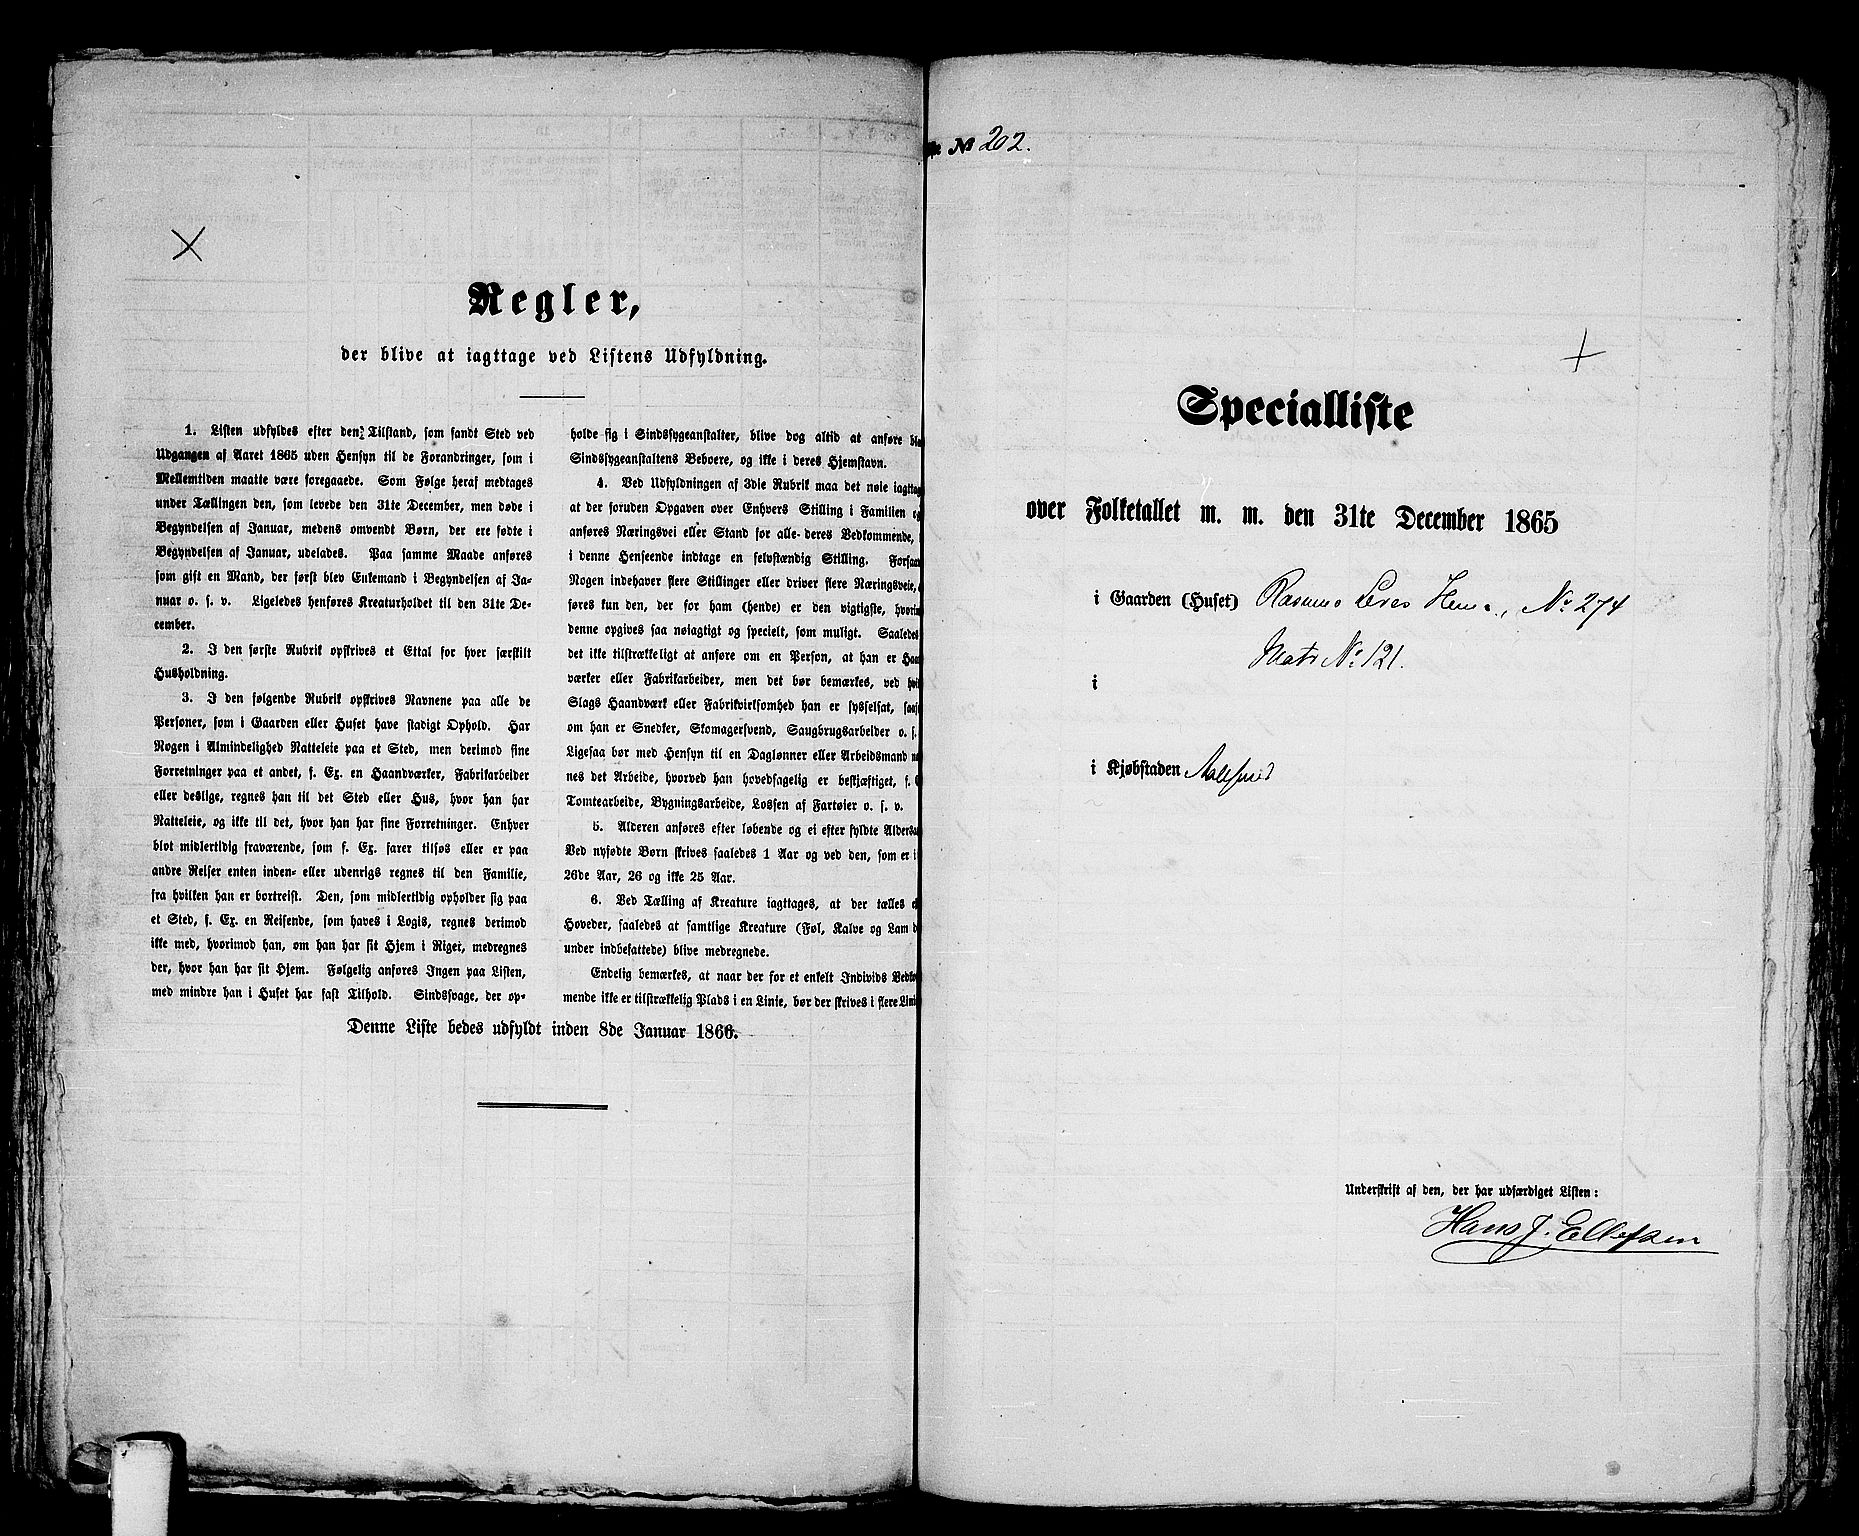 Regler,
der blive at iagttage ved Listens Udfyldning.
1. Listen udfyldes efter den Tilstand, som fandt Sted ved
Udgangen af Aaret 1865 uden Hensyn til de Forandringer, som i
Mellemtiden maatte være foregaaede. Som Følge heraf medtages
under Tællingen den, som levede den 31te December, men døde i
Begyndelsen af Januar, medens omvendt Børn, der ere fødte i
Begyndelsen af Januar, udelades. Paa samme Maade anføres
som gift en Mand, der først blev Enkemand i Begyndelsen af Ja-
nuar o. s. v. Ligeledes henføres Kreaturholdet til den 31te De-
cember.
2. I den første Rubrik opskrives et Ettal for hver særskilt
Husholdning.
3. I den følgende Rubrik opskrives Navnene paa alle de
Personer, som i Gaarden eller Huset have stadigt Ophold. Har
Nogen i Almindelighed Natteleie paa et Sted, men derimod sine
Forretninger paa et andet, f. Ex. en Haandværker, Fabrikarbeider
eller deslige, regnes han til det Sted eller Hus, hvor han har
Natteleie, og ikke til det, hvor han har sine Forretninger. Enhver
blot midlertidig fraværende, som f. Ex. farer tilsøs eller er paa
andre Reiser enten inden- eller udenrigs regnes til den Familie,
fra hvilken han er bortreist. Den, som midlertidig opholder sig paa
et Sted, f. Ex. en Reisende, som haves i Logis, regnes derimod
ikke med, hvorimod han, om han har sit Hjem i Riget, medregnes
der, hvor han har sit Hjem. Følgelig anføres Ingen paa Listen,
med mindre han i Huset har fast Tilhold. Sindssvage, der op-
holde sig i Sindssygeanstalter, blive dog altid at anføre
Sindssygeanstaltens Beboere, og ikke i deres Hjemstavn.
4. Ved Udfyldningen af 3die Rubrik maa det nøie iagttag
at der foruden Opgaven over Enhvers Stilling i Familien
anføres Næringsvei eller Stand for alle deres Vedkommende,
i denne Henseende indtage en selvstændig Stilling. Forsaa
Nogen indehaver flere Stillinger eller driver flere Næringsveie,
føres kun den, der for ham (hende) er den vigtigste, hvori
denne opgives saa nøiagtigt og specielt, som muligt. Saaledes
det ikke tilstrækkeligt at anføre om en Person, at han er Haa
værker eller Fabrikarbeider, men det bør bemærkes, ved
Slags Haandværk eller Fabrikvirksomhed han er sysselsat,
om han er Snedker, Skomagersvend, Saugbrugsarbeider o. s.
Ligesaa bør med Hensyn til en Daglønner eller Arbeidsmand
nes det Arbeide, hvorved han hovedsagelig er beskjæftiget, f.
Tomtearbeide, Bygningsarbeide, Lossen af Fartøier o. s. v.
5. Alderen anføres efter løbende og ei efter fyldte Aldersa
Ved nyfødte Børn skrives saaledes 1 Aar og ved den, som er i
26de Aar, 26 og ikke 25 Aar.
6. Ved Tælling af Kreature iagttages, at der tælles
Hoveder, saaledes at samtlige Kreature (Føl, Kalve og Lam
under indbefattede) blive medregnede.
Endelig bemærkes, at naar der for et enkelt Individs Vedkom
mende ikke er tilstrækkelig Plads i en Linie, bør der skrives i flere Lini
Denne Liste bedes udfyldt inden 8de Januar 1866.
No 202.
Specialliste
over Folketallet m. m. den 31te December 1865
i Gaarden (Huset) Rasmus No 274
Matr No 121.
i
i Kjøbstaden Aalesund
Underskrift af den, der har udfærdiget Listen:
Hans J. Ellefsen